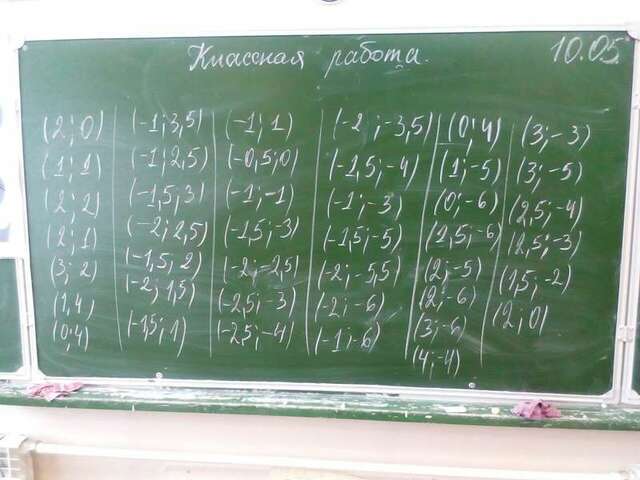 Классная работа. 10.05
(2; 0)
(1; 1)
(2; 2)
(2; 1)
(3; 2)
(1, 4)
(0; 4)
(-1; 3,5)
(-1; 2,5)
(-1,5; 3)
(-2; 2,5)
(-1,5; 2)
(-2; 1,5)
(-1,5; 1)
(-1; 1)
(-0,5; 0)
(-1; -1)
(-1,5; -3)
(-2; -2,5)
(-2,5; -3)
(-2,5; -4)
(-2; -3,5)
(-1,5; -4)
(-1; -3)
(-1,5; -5)
(-2; -5,5)
(-2; -6)
(-1; -6)
(0; 4)
(1; -5)
(0; -6)
(1,5; -6)
(2; -5)
(2; -6)
(3; -6)
(4; -4)
(3; -3)
(3; -5)
(2,5; -4)
(2,5; -3)
(1,5; -2)
(2; 0)